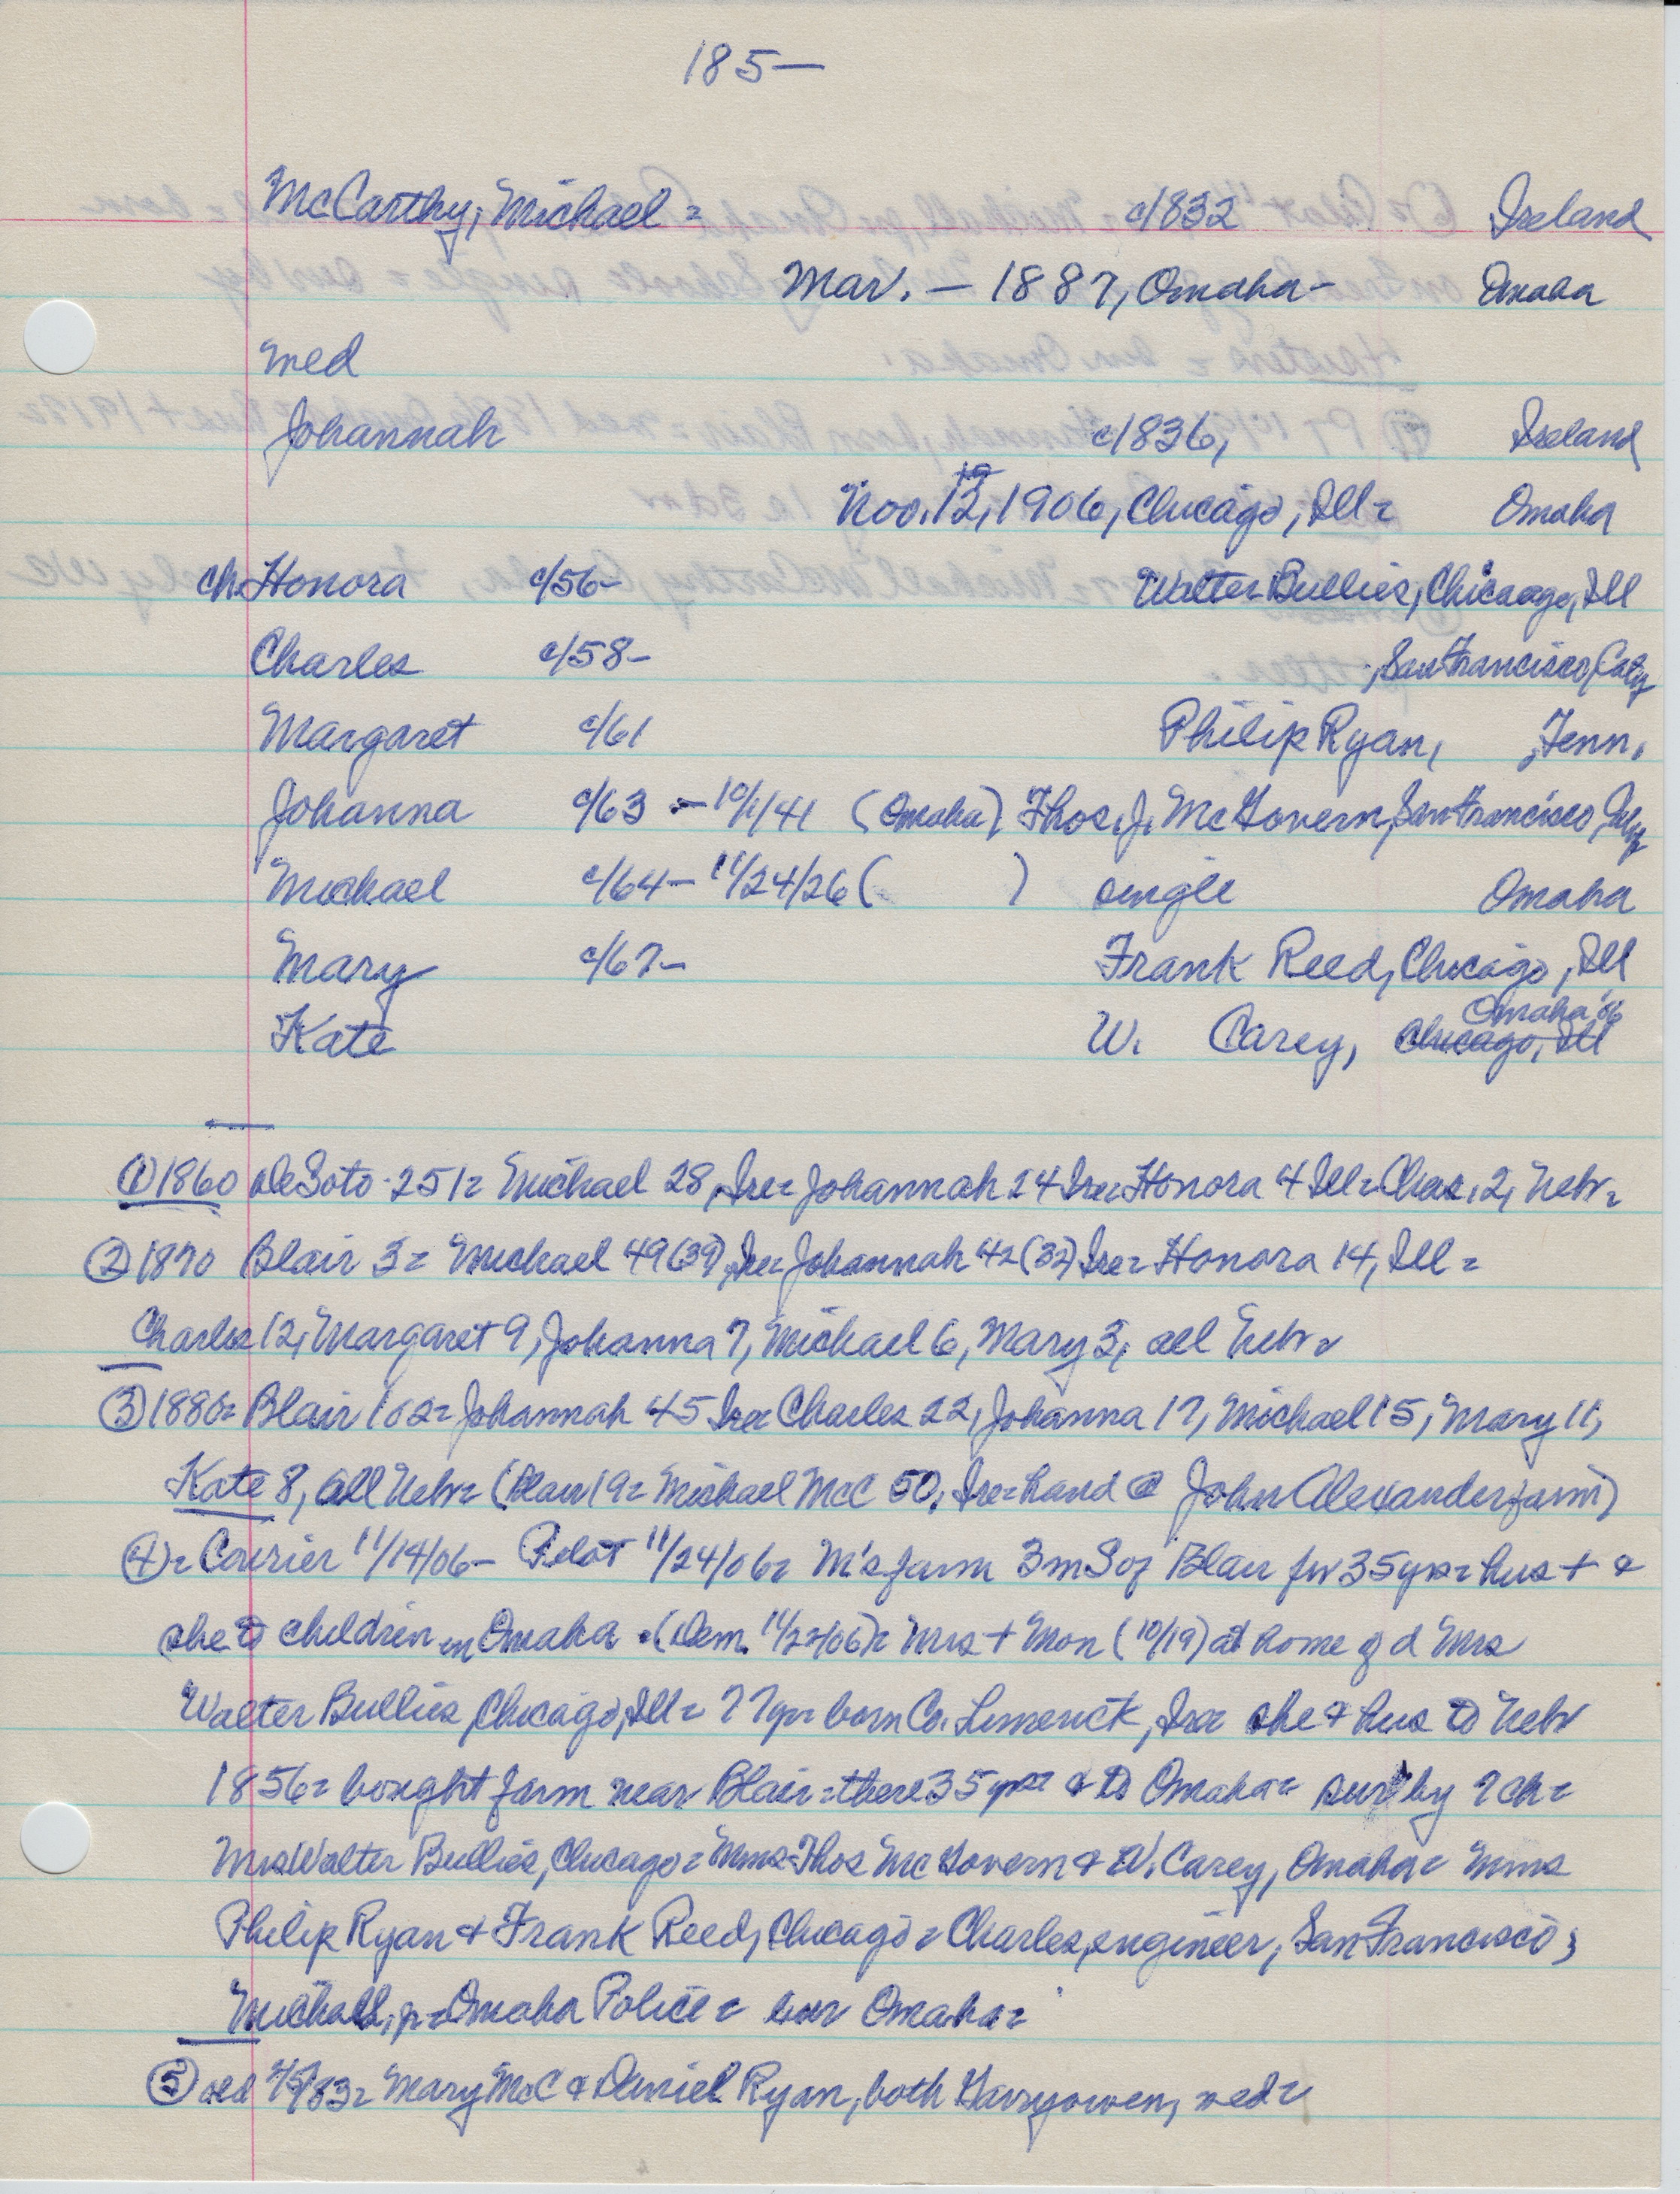 185—
McCarthy, Michael = c/1832 Ireland
Mar. — 1887, Omaha - Omaha
wed
Johannah c/1836, Ireland
Nov. 12, 19 1906, Chicago, Ill = Omaha
ch. Honora c/56- Walter Bullies, Chicago, Ill
Charles c/58- , San Francisco, Caly
Margaret c/61 Philip Ryan, , Tenn.
Johanna c/63 - 10/1/41 (Omaha) Thos. J. McGovern, San Francisco,
Michael c/64 - 11/24/26 ( ) single Omaha
Mary c/67- Frank Reed, Chicago, Ill
Kate W. Carey, Chicago, Ill Omaha '06
① 1860 DeSoto - 251 = Michael 28, Ire = Johannah 24 Ire = Honora 4 Ill = Chas. 2, Nebr =
② 1870 Blair 3 = Michael 49 (39), Ire = Johannah 42 (32) Ire = Honora 14, Ill =
Charles 12, Margaret 9, Johanna 7, Michael 6, Mary 3, all Nebr =
③ 1880 = Blair 102 = Johannah 45 Ire = Charles 22, Johanna 17, Michael 15, Mary 11,
Kate 8, all Nebr = (Blair 19 = Michael McC 50, Ire = hand @ John Alexander farm)
④ = Courier 11/14/06 - Pilot 11/24/06 = M's farm 3 m S of Blair for 35 yrs = hus + &
she to children in Omaha . (Dem. 11/22/06) = Mrs + Mon (10/19) at home of d Mrs
Walter Bullies, Chicago, Ill = 77 yr = born Co. Limerick, Ire = she & hus to Nebr
1856 = bought farm near Blair = there 35 yrs = & to Omaha = surv by 7 ch =
Mrs Walter Bullies, Chicago = Mmes Thos McGovern & W. Carey, Omaha = Mmes
Philip Ryan & Frank Reed, Chicago = Charles, engineer, San Francisco;
Michael, jr = Omaha Police = bur Omaha =
⑤ old = Mary McC & Daniel Ryan, both Garryowen, wed =